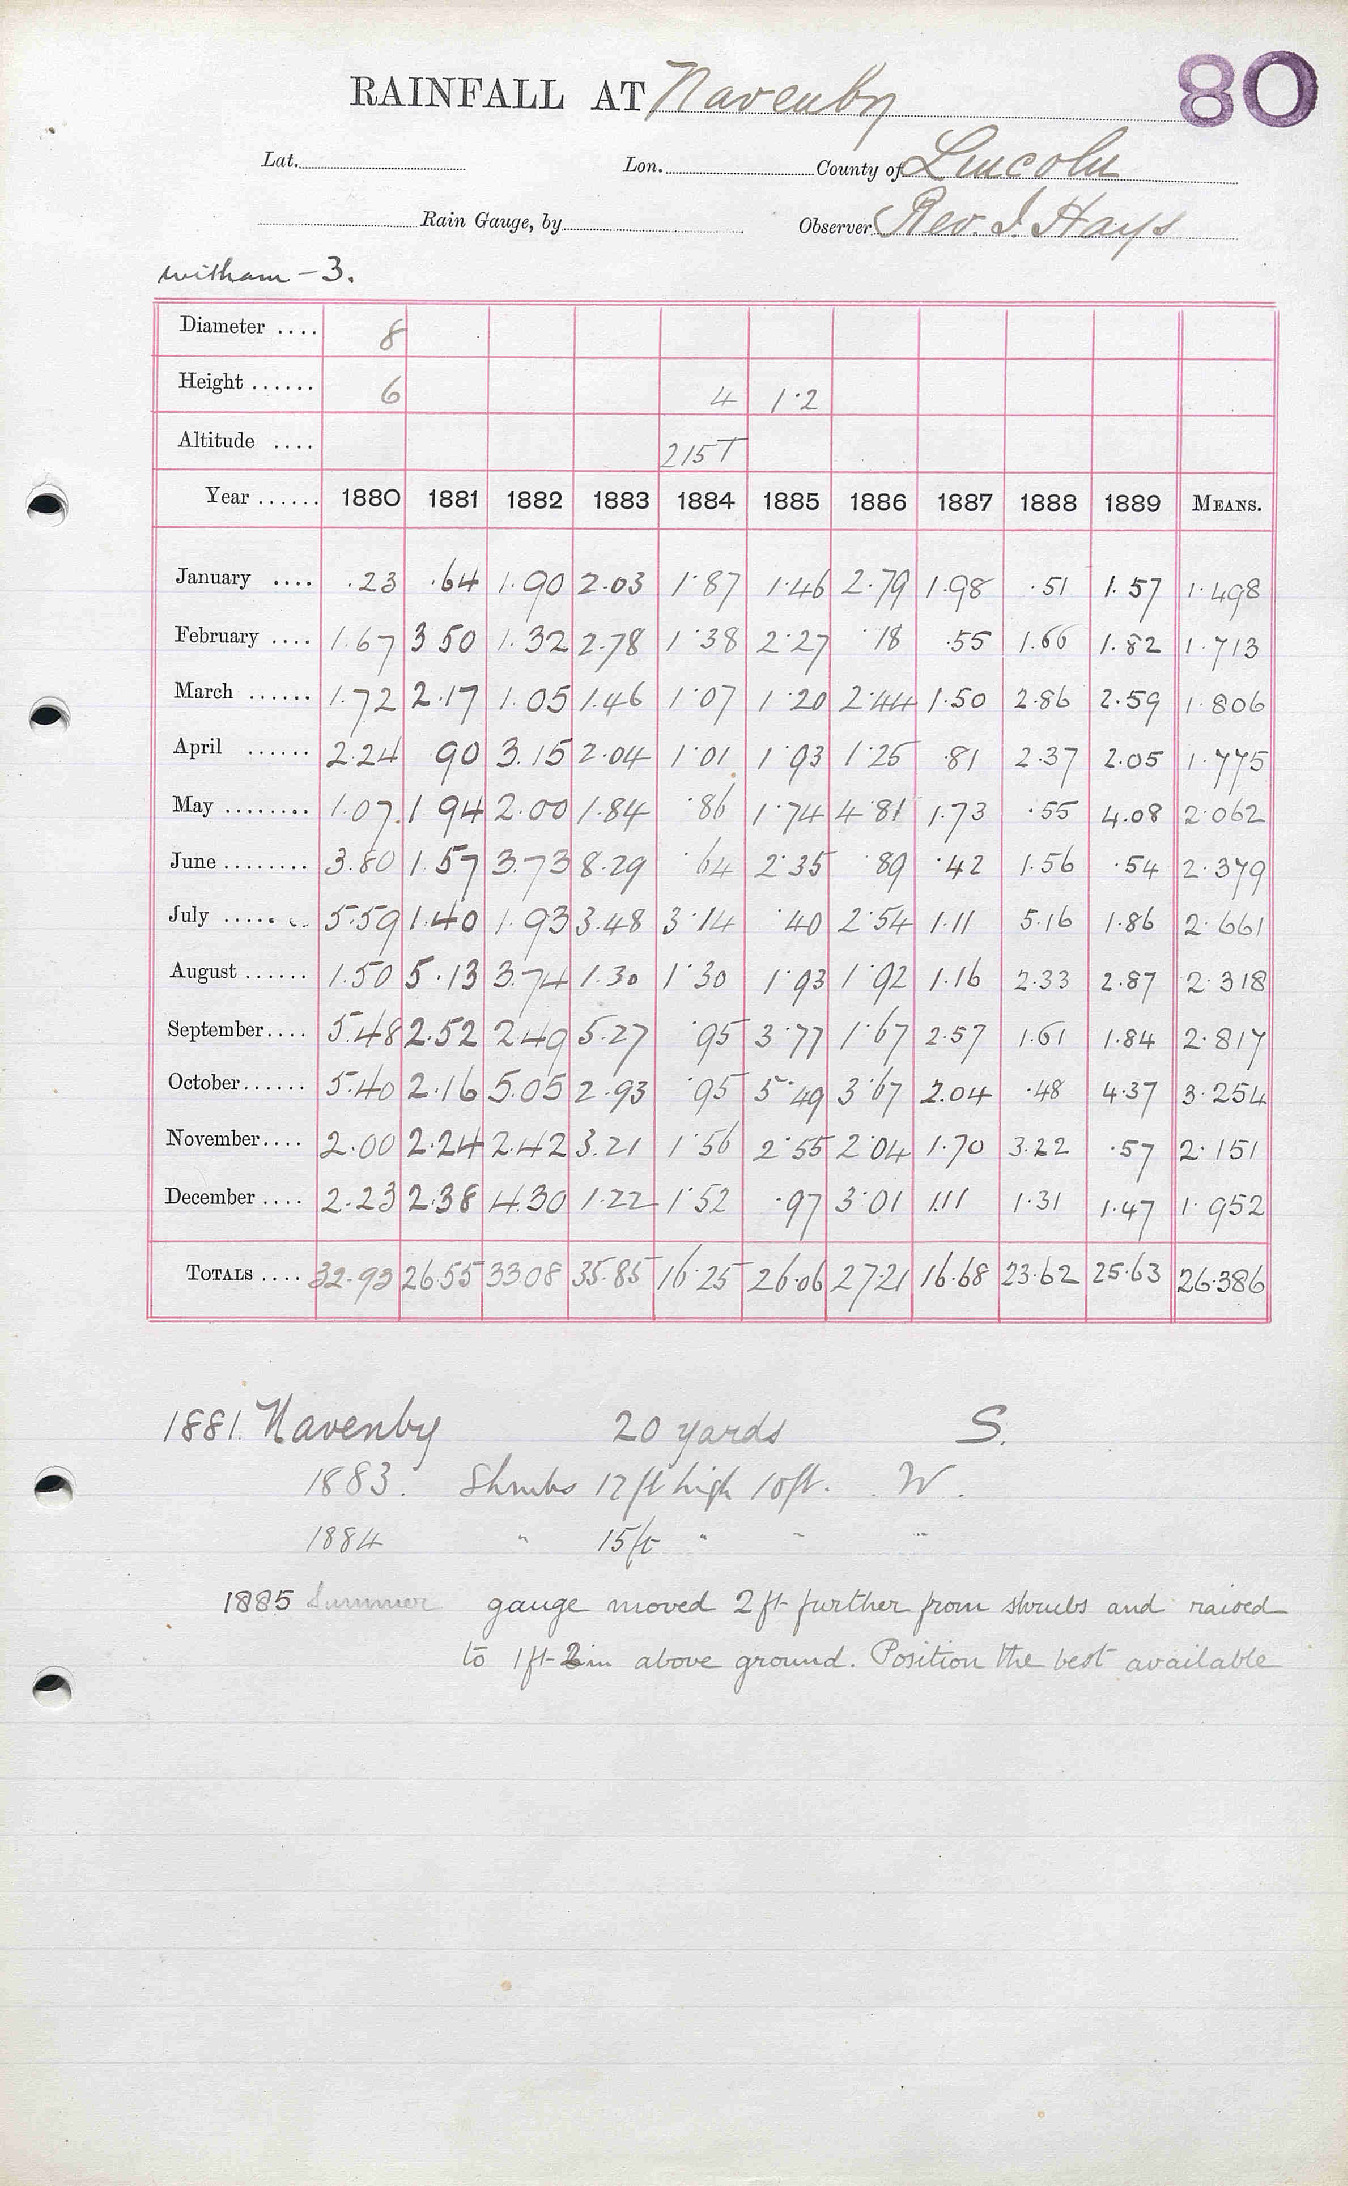 80
RAINFALL AT Navenby
Lat. Lon. County of Lincoln
Rain Gauge, by Observer Rev. J. Hays
Witham - 3.
Diameter .... 8
Height ...... 6 4 1·2
Altitude .... 215T
Year ...... 1880 1881 1882 1883 1884 1885 1886 1887 1888 1889 MEANS.
January .... .23 .64 1.90 2.03 1·87 1·46 2.79 1.98 .51 1.57 1.498
February .... 1.67 3 50 1.32 2.78 1·38 2·27 ·18 .55 1.66 1.82 1.713
March ...... 1.72 2.17 1.05 1.46 1·07 1·20 2·44 1.50 2.86 2.59 1.806
April ...... 2.24 90 3.15 2.04 1·01 1·93 1·25 .81 2.37 2.05 1.775
May ........ 1.07 1 94 2.00 1.84 ·86 1·74 4·81 1.73 .55 4.08 2.062
June ........ 3.80 1.57 3.73 8.29 ·64 2·35 ·89 .42 1.56 .54 2.379
July ...... 5.59 1.40 1.93 3.48 3·14 ·40 2·54 1.11 5.16 1.86 2.661
August ...... 1.50 5.13 3.74 1.30 1·30 1·93 1·92 1.16 2.33 2.87 2.318
September .... 5.48 2.52 2.49 5.27 ·95 3·77 1·67 2.57 1.61 1.84 2.817
October ...... 5.40 2.16 5.05 2.93 ·95 5·49 3·67 2.04 .48 4.37 3.254
November .... 2.00 2.24 2.42 3.21 1·56 2·55 2·04 1.70 3.22 .57 2.151
December .... 2.23 2.38 4.30 1.22 1·52 .97 3·01 1.11 1.31 1.47 1.952
TOTALS .... 32.93 26.55 33.08 35.85 16·25 26.06 27.21 16.68 23.62 25.63 26.386
1881. Navenby 20 yards S.
1883. Shrubs 12 ft high 10 ft. W.
1884 " 15 ft " " "
1885 Summer gauge moved 2 ft further from shrubs and raised
to 1 ft 2 in above ground. Position the best available